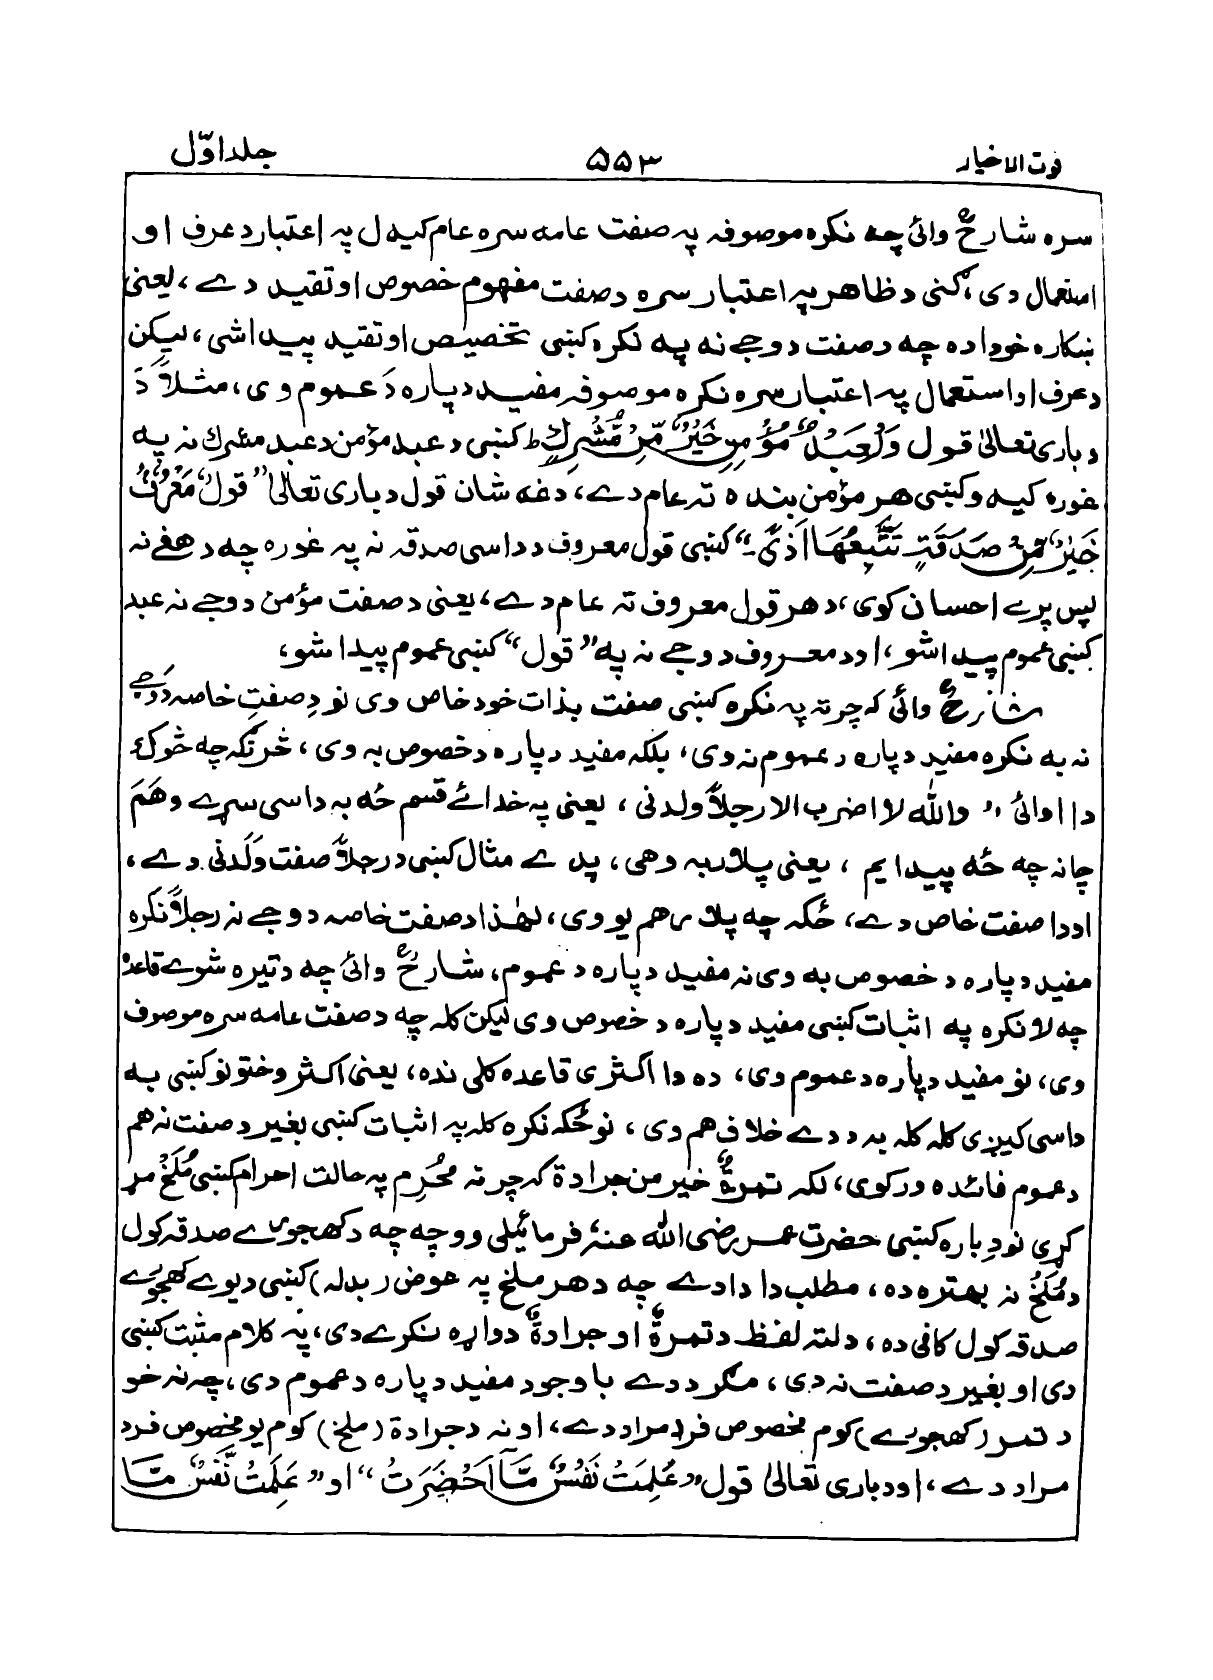 قوت الاخیار ۵۵۳ جلد اوّل
سره شارحؒ وائی چه نکره موصوفه په صفت عامه سره عام کیدل په اعتبار د عرف او
استعمال دی، کنی د ظاهر په اعتبار سره د صفت مفهوم خصوص او تقید دے، یعنی
ښکاره خو دا ده چه د صفت د وجے نه په نکره کښی تخصیص او تقید پیدا شی، لیکن
د عرف او استعمال په اعتبار سره نکره موصوفه مفید دپاره دَ عموم وی، مثلاً دَ
د باری تعالیٰ قول وَلَعَبْدٌ مُّؤْمِنٌ خَیْرٌ مِّنْ مُّشْرِكٍ ط کښی د عبد مؤمن د عبد مشرك نه په
غوره کیدو کښی هر مؤمن بنده ته عام دے، دغه شان قول د باری تعالیٰ ”قَوْلٌ مَّعْرُوْفٌ
خَیْرٌ مِّنْ صَدَقَةٍ تَتْبَعُهَا اَذًی“ کښی قول معروف د داسی صدقه نه په غوره چه د هغے نه
پس پرے احسان کوی، د هر قول معروف ته عام دے، یعنی د صفت مؤمن د وجے نه عبد
کښی عموم پیدا شو، او د معروف د وجے نه په ”قول“ کښی عموم پیدا شو،
شارحؒ وائی که چرته په نکره کښی صفت بذات خود خاص وی نو دِ صفتِ خاصه دَ وجے
نه به نکره مفید دپاره د عموم نه وی، بلکه مفید دپاره د خصوص به وی، څرنګه چه څوك
دا اوائی ” والله لا اضرب الا رجلاً ولدنی، یعنی په خدائے قسم څه به داسی سړے وهم
چانه چه څه پیدا یم، یعنی پلار به وهی، پدے مثال کښی د رجلاً صفت ولدنی دے،
او دا صفت خاص دے، ځکه چه پلار هم یو وی، لهٰذا د صفت خاصه د وجے نه رجلاً نکره
مفید دپاره د خصوص به وی نه مفید دپاره د عموم، شارحؒ وائی چه د تیره شوے قاعده
چه لا نکره په اثبات کښی مفید دپاره د خصوص وی لیکن کله چه د صفت عامه سره موصوف
وی، نو مفید دپاره د عموم وی، ده دا اکثری قاعده کلی نده، یعنی اکثر وختونو کښی به
داسی کیږی کله کله به د دے خلاف هم وی، نو ځکه نکره کله په اثبات کښی بغیر د صفت نه هم
د عموم فائده ورکوی، لکه تمرةٌ خیر من جرادة که چرته مُحْرِم په حالت احرام کښی مُلَخْ مړ
کړی نو دِباره کښی حضرت عمر رضی الله عنهٗ فرمائیلی وو چه چه د کهجورے صدقه کول
د مُلَخْ نه بهتره ده، مطلب دا دادے چه د هر ملخ په عوض (بدله) کښی د یوے کهجورے
صدقه کول کافی ده، دلته لفظ د تمرةٌ او جرادةٌ دواړه نکرے دی، په کلام مثبت کښی
دی او بغیر د صفت نه دی، مګر ددے باوجود مفید دپاره د عموم دی، چه نه خو
د تمر (کهجورے) کوم مخصوص فرد مراد دے، او نه د جرادة (ملخ) کوم یو مخصوص فرد
مراد دے، او د باری تعالیٰ قول ”عَلِمَتْ نَفْسٌ مَّا اَحْضَرَتْ“ او ”عَلِمَتْ نَفْسٌ مَّا